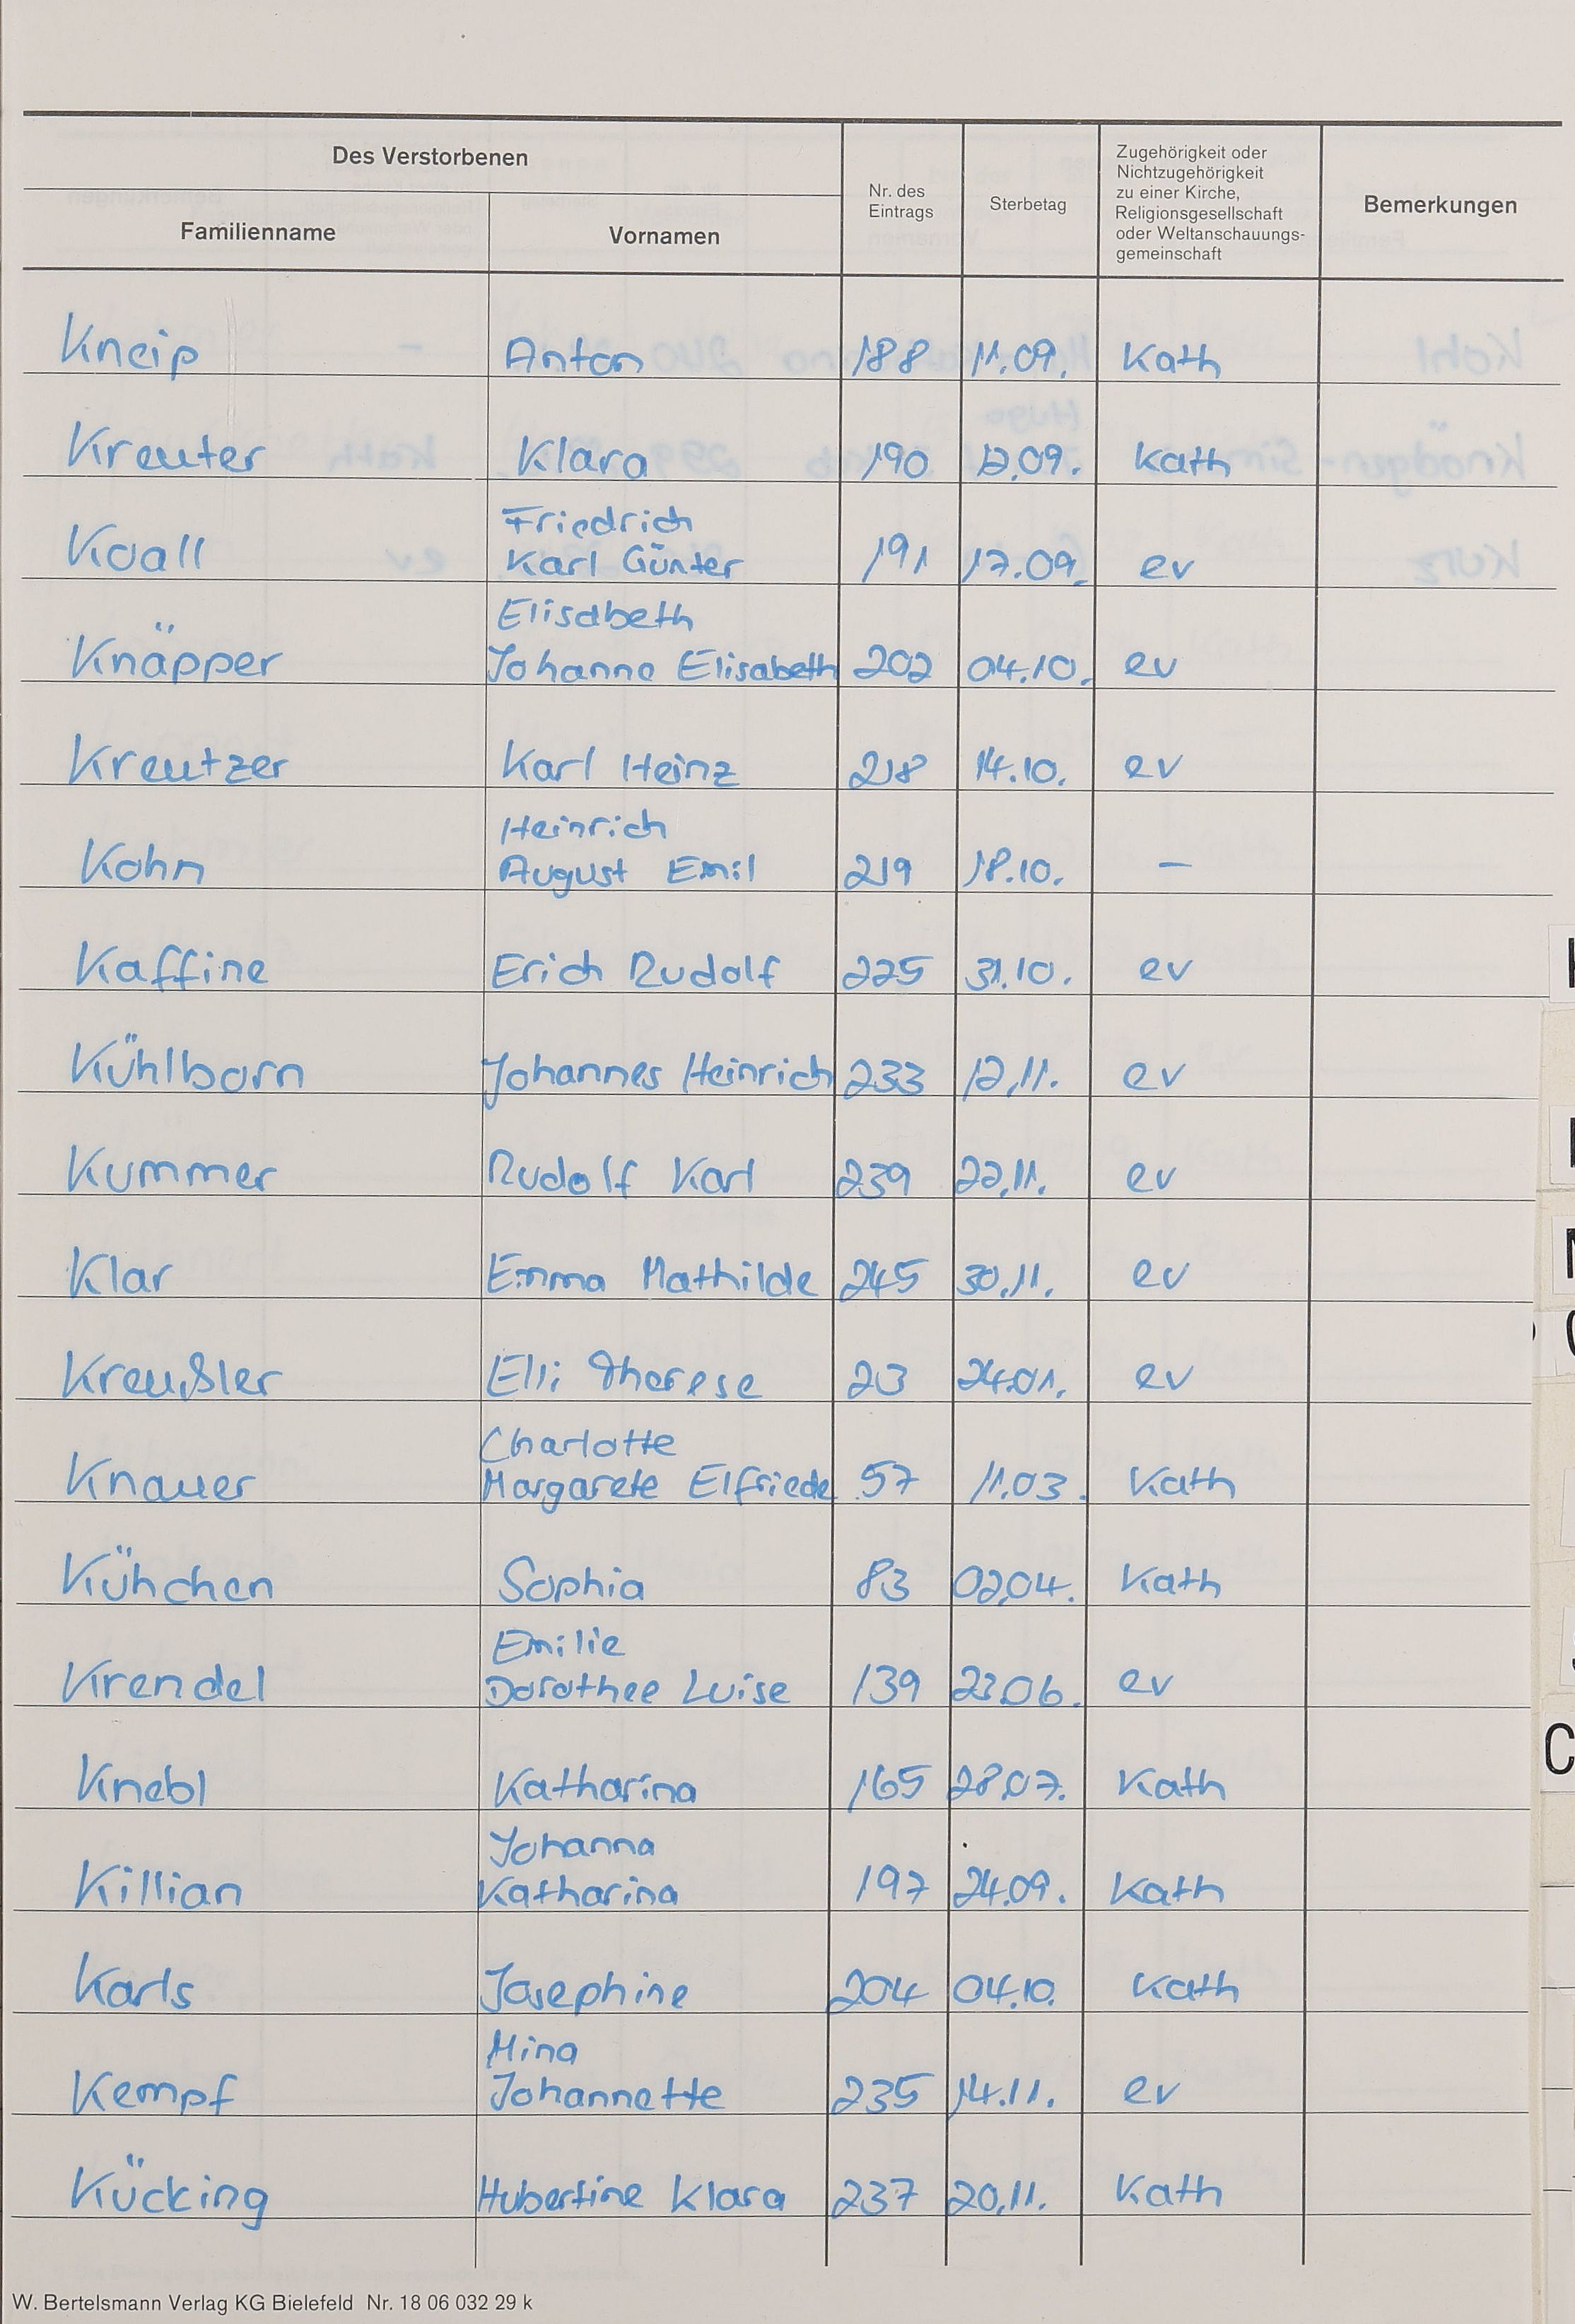 Des Verstorbenen
Familienname Vornamen
Nr. des
Eintrags
Sterbetag
Zugehörigkeit oder
Nichtzugehörigkeit
zu einer Kirche,
Religionsgesellschaft
oder Weltanschauungs-
gemeinschaft
Bemerkungen
Kneip Anton 188 11.09. Kath
Kreuter Klara 190 12.09. Kath
Friedrich
Koall Karl Günter 191 17.09. ev
Elisabeth
Knäpper Johanne Elisabeth 202 04.10. ev
Kreutzer Karl Heinz 218 14.10. ev
Heinrich
Kohn August Emil 219 18.10. –
Kaffine Erich Rudolf 225 31.10. ev
Kühlborn Johannes Heinrich 233 12.11. ev
Kummer Rudolf Karl 239 22.11. ev
Klar Emma Mathilde 245 30.11. ev
Kreußler Elli Therese 23 24.01. ev
Charlotte
Knauer Margarete Elfriede 57 11.03. Kath
Kühchen Sophia 83 02.04. Kath
Emilie
Krendel Dorothee Luise 139 23.06. ev
Knebl Katharina 165 28.07. Kath
Johanna
Killian Katharina 197 24.09. Kath
Karls Josephine 204 04.10. Kath
Mina
Kempf Johannette 235 14.11. ev
Kücking Hubertine Klara 237 20.11. Kath
W. Bertelsmann Verlag KG Bielefeld Nr. 18 06 032 29 k